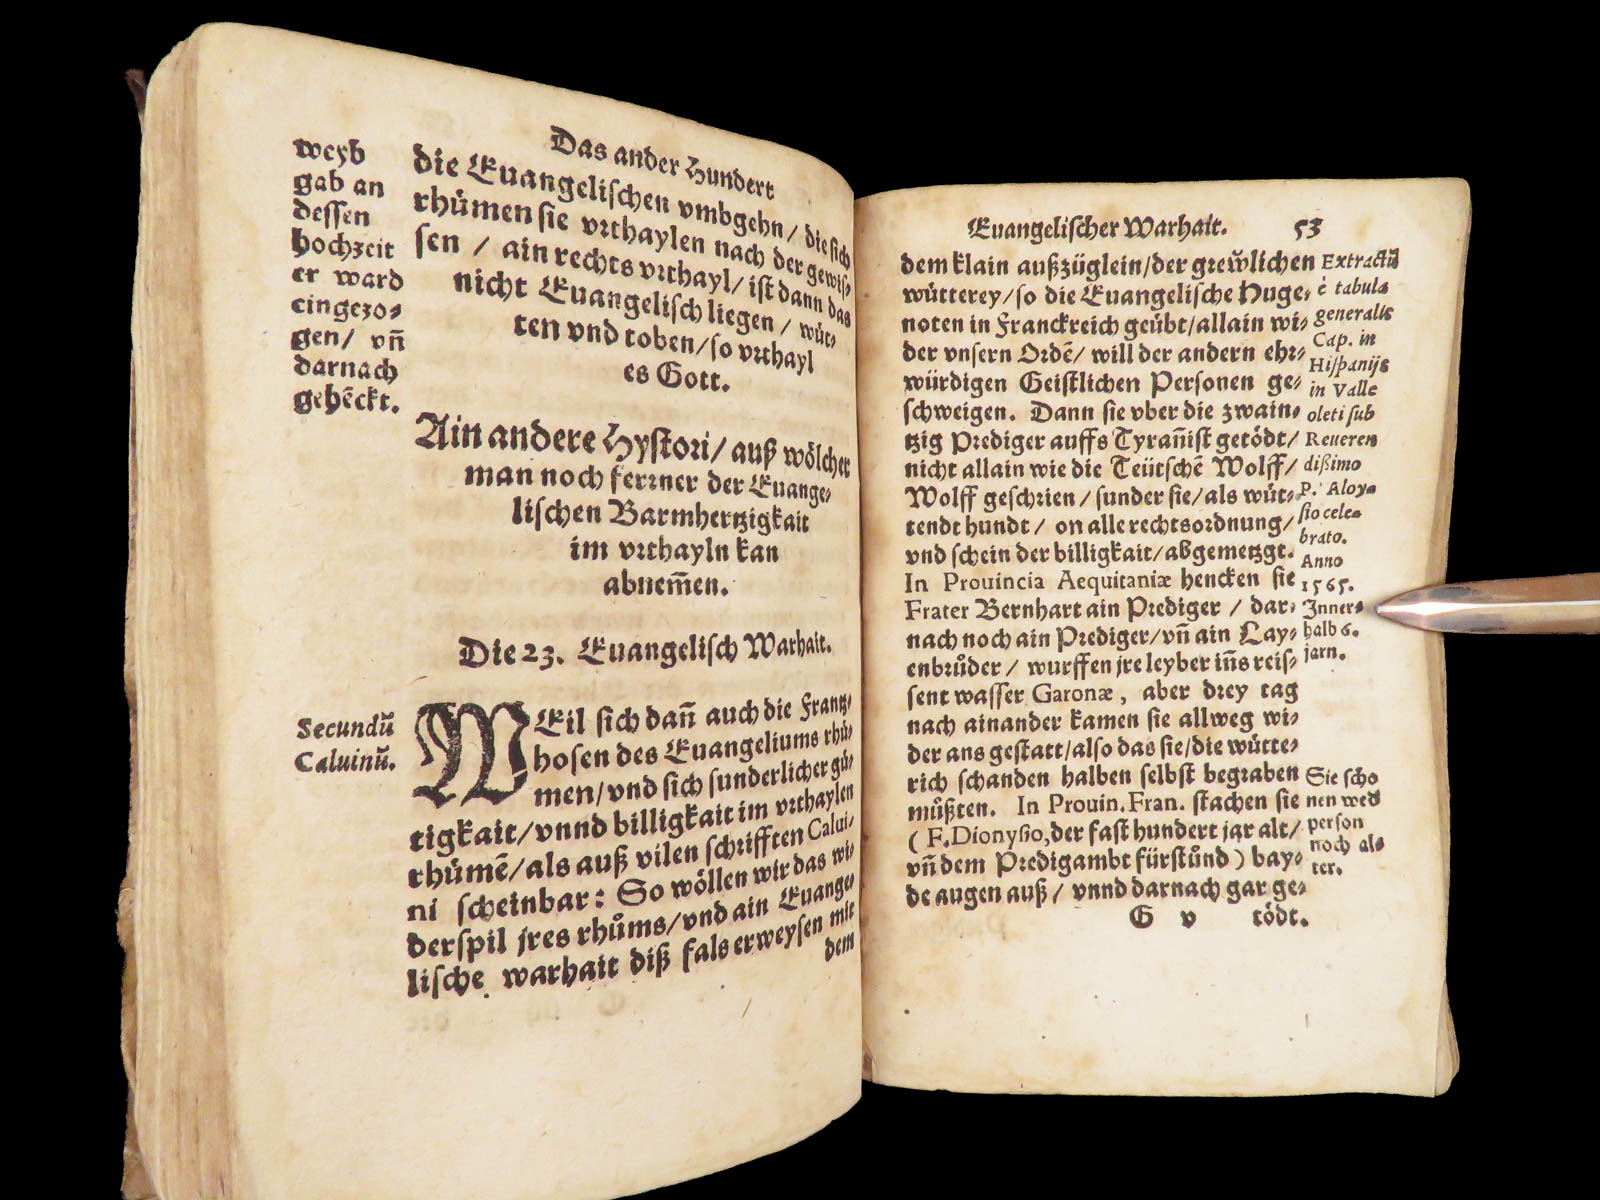 Das ander Hundert
weyb
gab an
dessen
hochzeit
er ward
eingezo⸗
gen/ vñ
darnach
gehẽckt.
die Euangelischen vmbgehn/ die sich
rhümen sie vrthaylen nach der gewis⸗
sen / ain rechts vrthayl/ ist dann das
nicht Euangelisch liegen / wüt⸗
ten vnd toben/so vrthayl
es Gott.
Ain andere Hystori/ auß wölcher
man noch ferrner der Euange⸗
lischen Barmhertzigkait
im vrthayln kan
abnem̃en.
Die 23. Euangelisch Warhait.
Secundũ
Caluinũ.
WEil sich dañ auch die Frantz⸗
hosen des Euangeliums rhü⸗
men/vnd sich sunderlicher gü⸗
tigkait/vnnd billigkait im vrthaylen
rhümẽ/als auß vilen schrifften Calui⸗
ni scheinbar: So wöllen wir das wi⸗
derspil jres rhůms/vnd ain Euange⸗
lische warhait diß fals erweysen mit
dem
Euangelischer Warhait. 53
dem klain außzüglein/der grew̃lichen
wütterey/so die Euangelische Huge⸗
noten in Franckreich geübt/allain wi⸗
der vnsern Ordẽ/ will der andern ehr⸗
würdigen Geistlichen Personen ge⸗
schweigen. Dann sie vber die zwain⸗
tzig Prediger auffs Tyrañist getödt/
nicht allain wie die Teütschẽ Wolff/
Wolff geschrien/ sunder sie/als wüt⸗
tendt hundt/ on alle rechtsordnung/
vnd schein der billigkait/abgemetzgt.
In Prouincia Aequitaniæ hencken sie
Frater Bernhart ain Prediger / dar⸗
nach noch ain Prediger/vñ ain Lay⸗
enbrůder/ wurffen jre leyber iñs reis⸗
sent wasser Garonæ, aber drey tag
nach ainander kamen sie allweg wi⸗
der ans gestatt/also das sie/die wütte⸗
rich schanden halben selbst begraben
můßten. In Prouin. Fran. stachen sie
( F. Dionysio, der fast hundert jar alt/
vñ dem Predigambt fürstůnd ) bay⸗
de augen auß/ vnnd darnach gar ge⸗
G v tödt.
Extractũ
è tabula
generalis
Cap. in
Hispanijs
in Valle
oleti sub
Reueren
dißimo
P. Aloy⸗
sio cele⸗
brato.
Anno
1565.
Inner⸗
halb 6.
jarn.
Sie scho
nen wed
person
noch al⸗
ter.